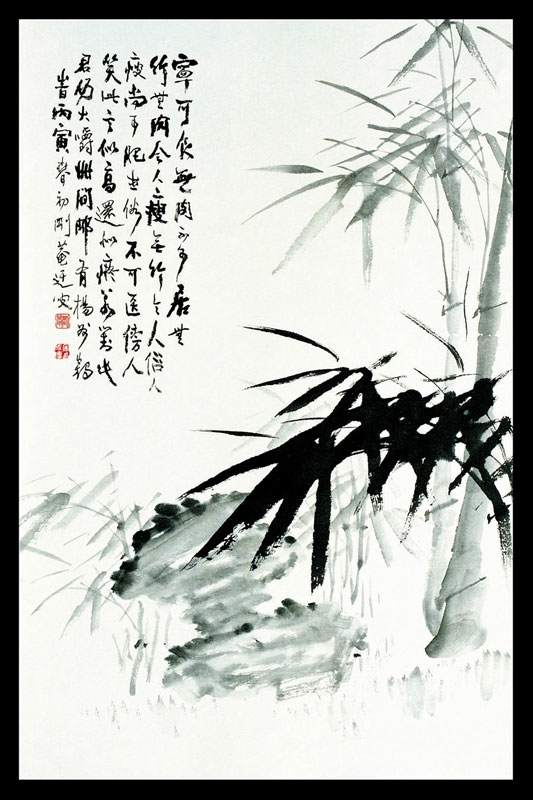 寧可使無肉不可居無
竹無肉令人瘦無竹令人俗人
瘦尚可肥士俗不可医傍人
笑此言似高還似癡若對此
君仍大嚼世間那有楊州鶴
旹丙寅春初剛菴迂叟